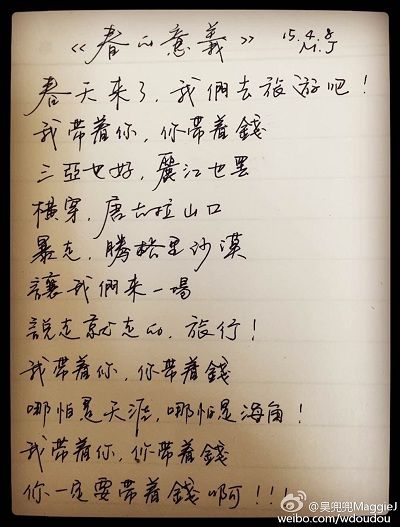 《春的意義》 15.4.8
M.J
春天来了，我們去旅游吧！
我带着你，你带着錢
三亞也好，麗江也罢
横穿，唐古拉山口
暴走，腾格里沙漠
讓我們来一場
說走就走的，旅行！
我带着你，你带着錢
哪怕是天涯，哪怕是海角！
我带着你，你带着錢
你一定要带着錢啊！！！
@吴兜兜MaggieJ
weibo.com/wdoudou